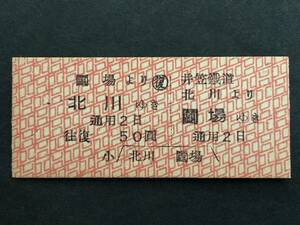 鬮場より 復
北川ゆき
通用2日
往復 50圓
井笠鐵道
北川より
鬮場ゆき
通用2日
小 北川 鬮場